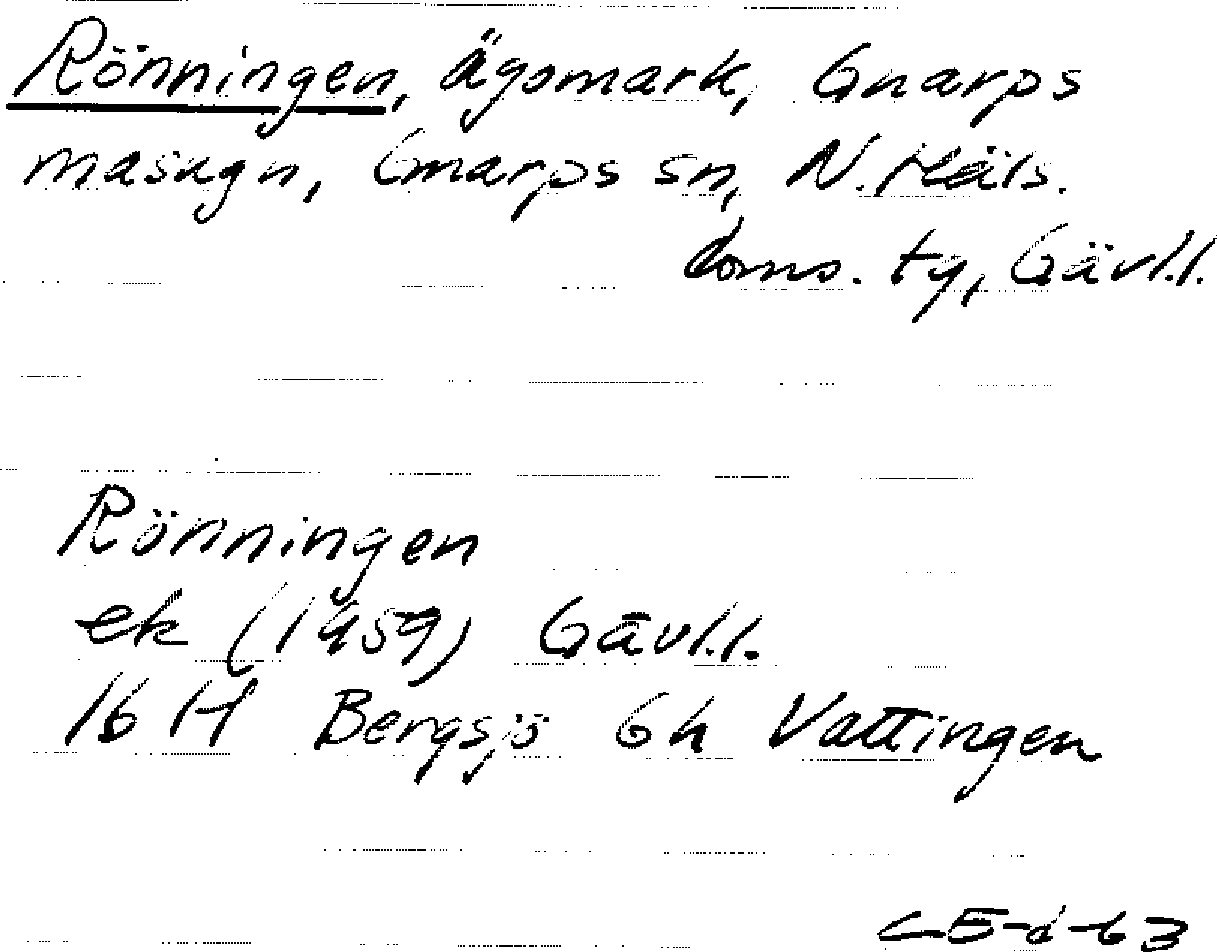 Rönningen, Ägomark, Gnarps
masugn, Gnarps sn, N. Häls.
doms. ty, Gävl.l.
Rönningen
ek (1959) Gävl.l.
16 H Bergsjö 6h Vattingen